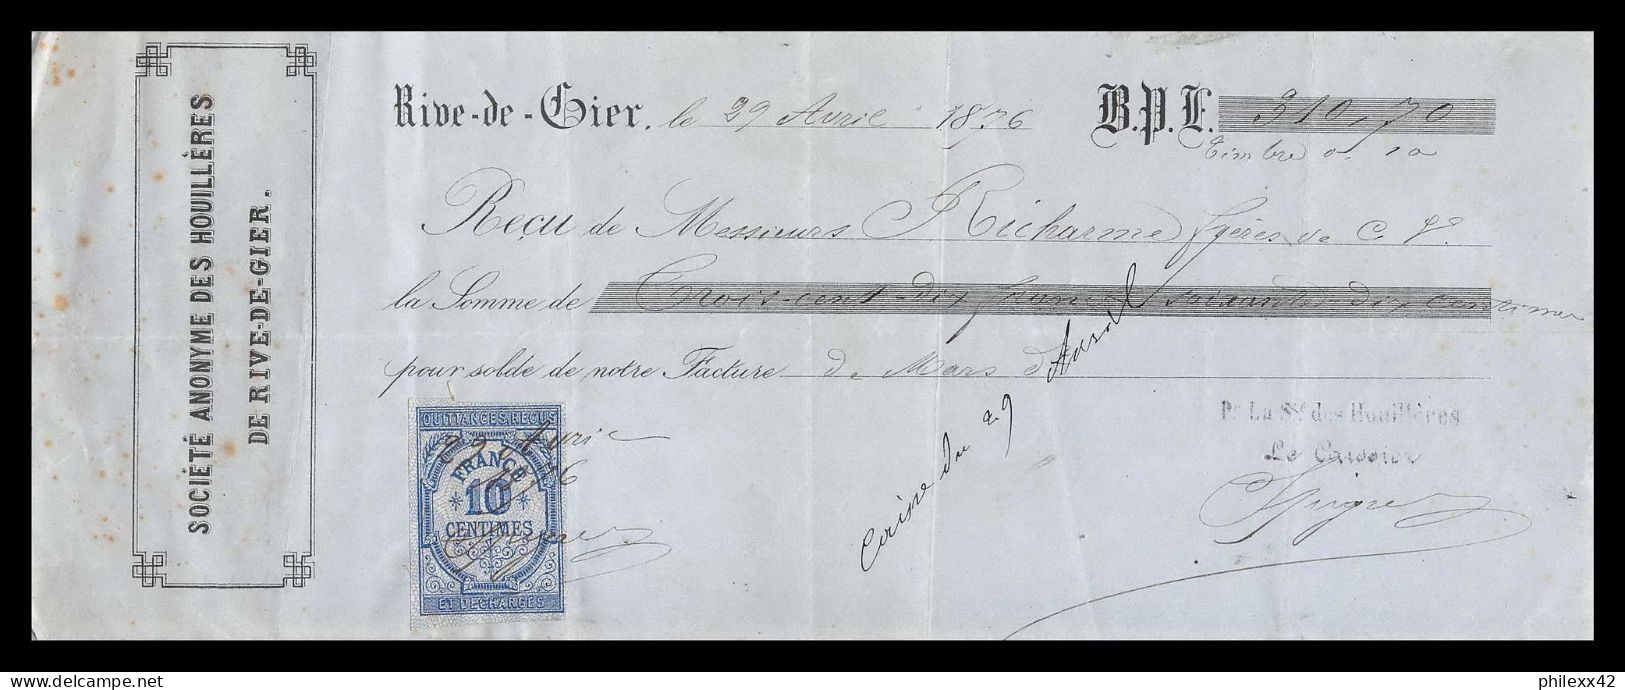 SOCIÉTÉ ANONYME DES HOUILLÈRES
DE RIVE-DE-GIER.
Rive-de-Gier, le 29 Avril 1876 B.P.F. 310,70
Timbre 0.10
Reçu de Messieurs Richarme frères & C.ie
la Somme de Trois-cent-dix francs soixante-dix centimes
pour solde de notre Facture de Mars dr
Caisse du 29 Avril
Pr La Sté des Houillères
Le Caissier
QUITTANCES REÇUS
29 Avril
76
FRANCE
10
CENTIMES
ET DÉCHARGES
philexx42
delcampe.net